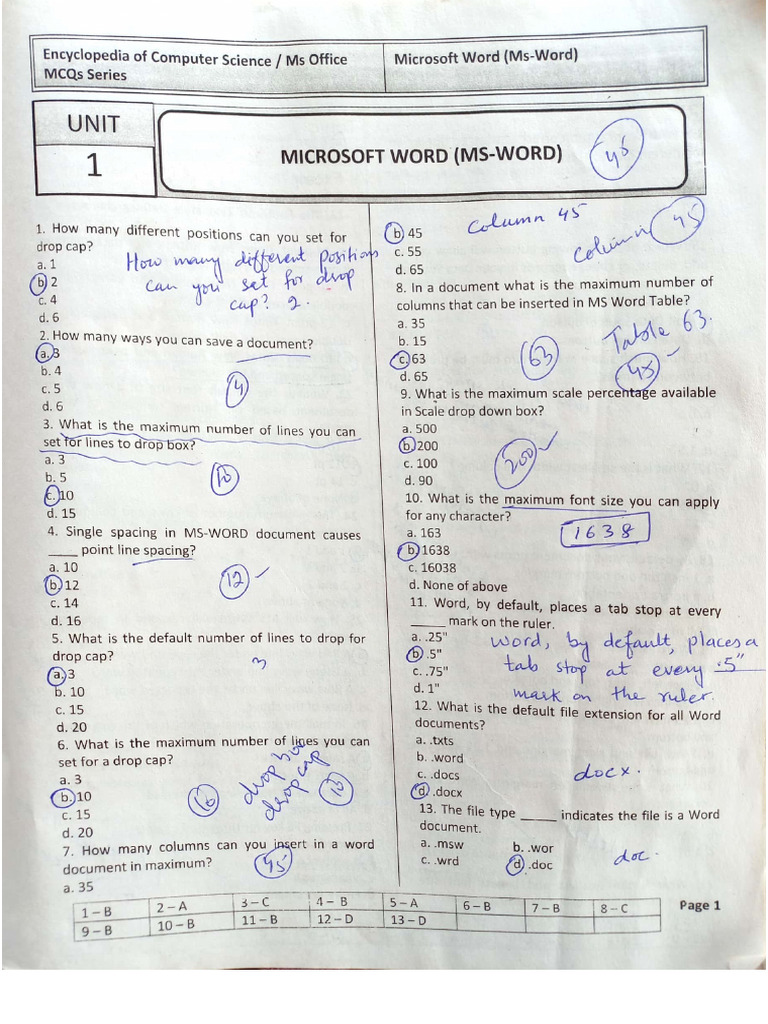 Encyclopedia of Computer Science / Ms Office
MCQs Series
Microsoft Word (Ms-Word)
UNIT
1
MICROSOFT WORD (MS-WORD)
45
1. How many different positions can you set for
drop cap?
a. 1
b. 2
c. 4
d. 6
How many different positions
can you set for drop
cap? 2.
2. How many ways you can save a document?
a. 3
b. 4
c. 5
d. 6
4
3. What is the maximum number of lines you can
set for lines to drop box?
a. 3
b. 5
c. 10
d. 15
10
4. Single spacing in MS-WORD document causes
____ point line spacing?
a. 10
b. 12
c. 14
d. 16
12
5. What is the default number of lines to drop for
drop cap?
a. 3
b. 10
c. 15
d. 20
3
6. What is the maximum number of lines you can
set for a drop cap?
a. 3
b. 10
c. 15
d. 20
10
drop box
drop cap
10
7. How many columns can you insert in a word
document in maximum?
a. 35
45
b. 45
c. 55
d. 65
Column 45
Column 45
8. In a document what is the maximum number of
columns that can be inserted in MS Word Table?
a. 35
b. 15
c. 63
d. 65
63
Table 63.
45
9. What is the maximum scale percentage available
in Scale drop down box?
a. 500
b. 200
c. 100
d. 90
200
10. What is the maximum font size you can apply
for any character?
a. 163
b. 1638
c. 16038
d. None of above
1638
11. Word, by default, places a tab stop at every
_____ mark on the ruler.
a. .25"
b. .5"
c. .75"
d. 1"
Word, by default, places a
tab stop at every .5"
mark on the ruler.
12. What is the default file extension for all Word
documents?
a. .txts
b. .word
c. .docs
d. .docx
docx.
13. The file type _____ indicates the file is a Word
document.
a. .msw b. .wor
c. .wrd d. .doc
doc.
1 – B 2 – A 3 – C 4 – B 5 – A 6 – B 7 – B 8 – C
9 – B 10 – B 11 – B 12 – D 13 – D
Page 1